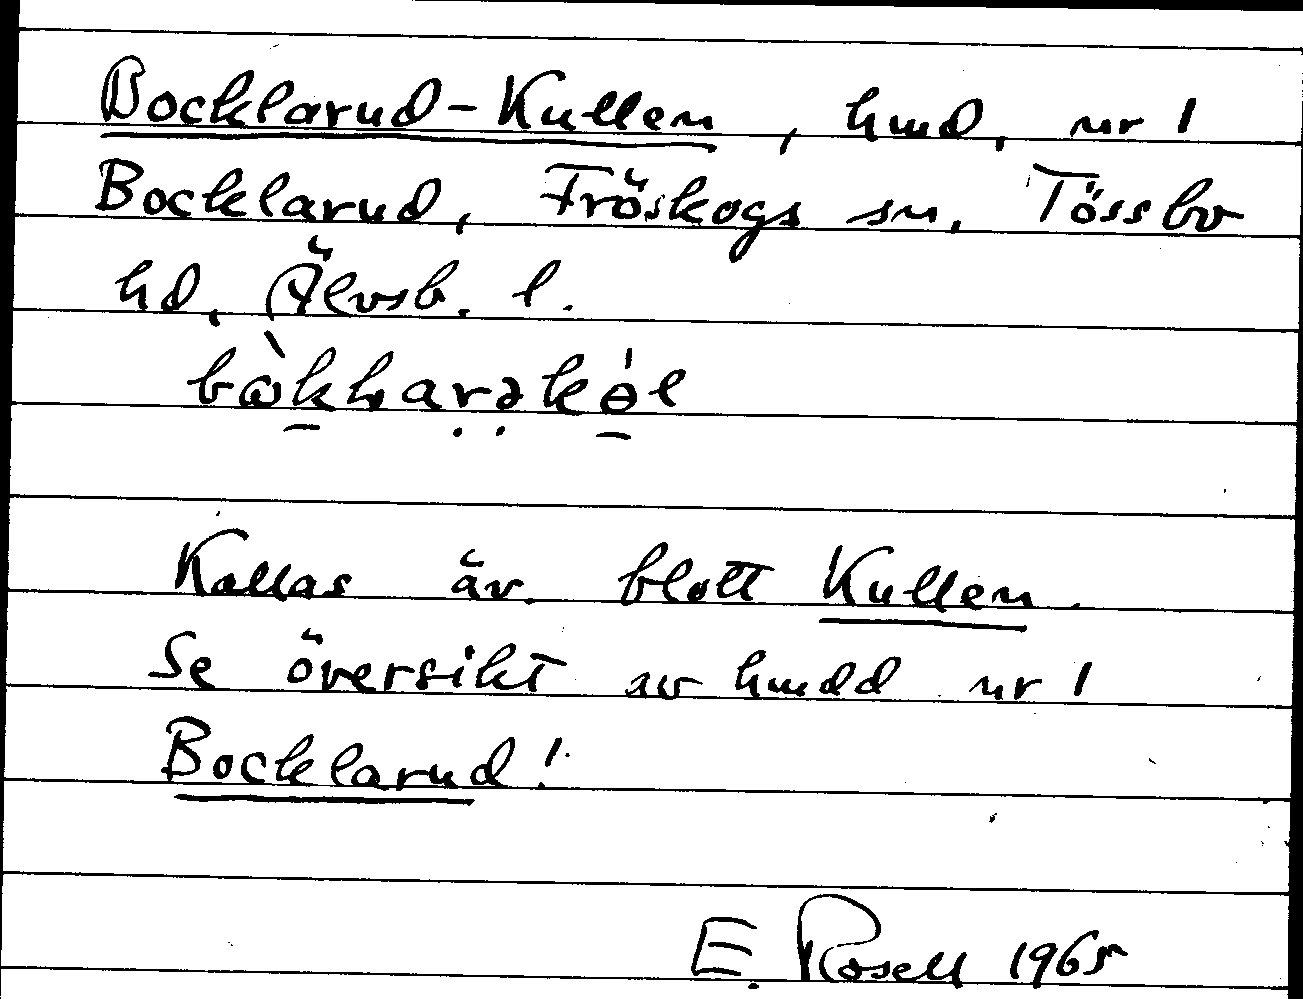 Bocklarud-Kullen, hmd, nr 1
Bocklarud, Fröskogs sn, Tössbo
hd, Älvsb. l.
Kallas äv. blott Kullen.
Se översikt av hmdd nr 1
Bocklarud!
E. Rosell 1965